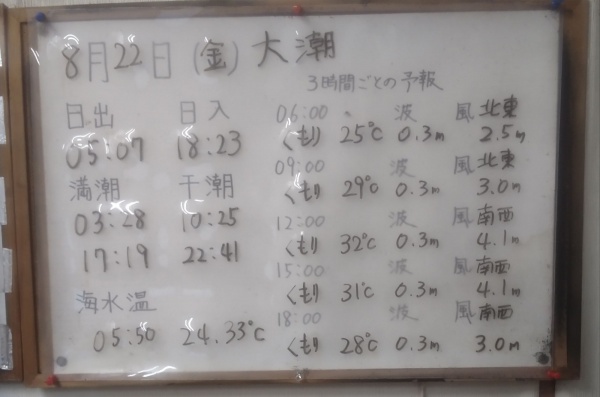 8月22日(金) 大潮
3時間ごとの予報
日出 日入
05:07 18:23
満潮 干潮
03:28 10:25
17:19 22:41
海水温
05:50 24.33℃
06:00 波 風 北東
くもり 25℃ 0.3m 2.5m
09:00 波 風 北東
くもり 29℃ 0.3m 3.0m
12:00 波 風 南西
くもり 32℃ 0.3m 4.1m
15:00 波 風 南西
くもり 31℃ 0.3m 4.1m
18:00 波 風 南西
くもり 28℃ 0.3m 3.0m